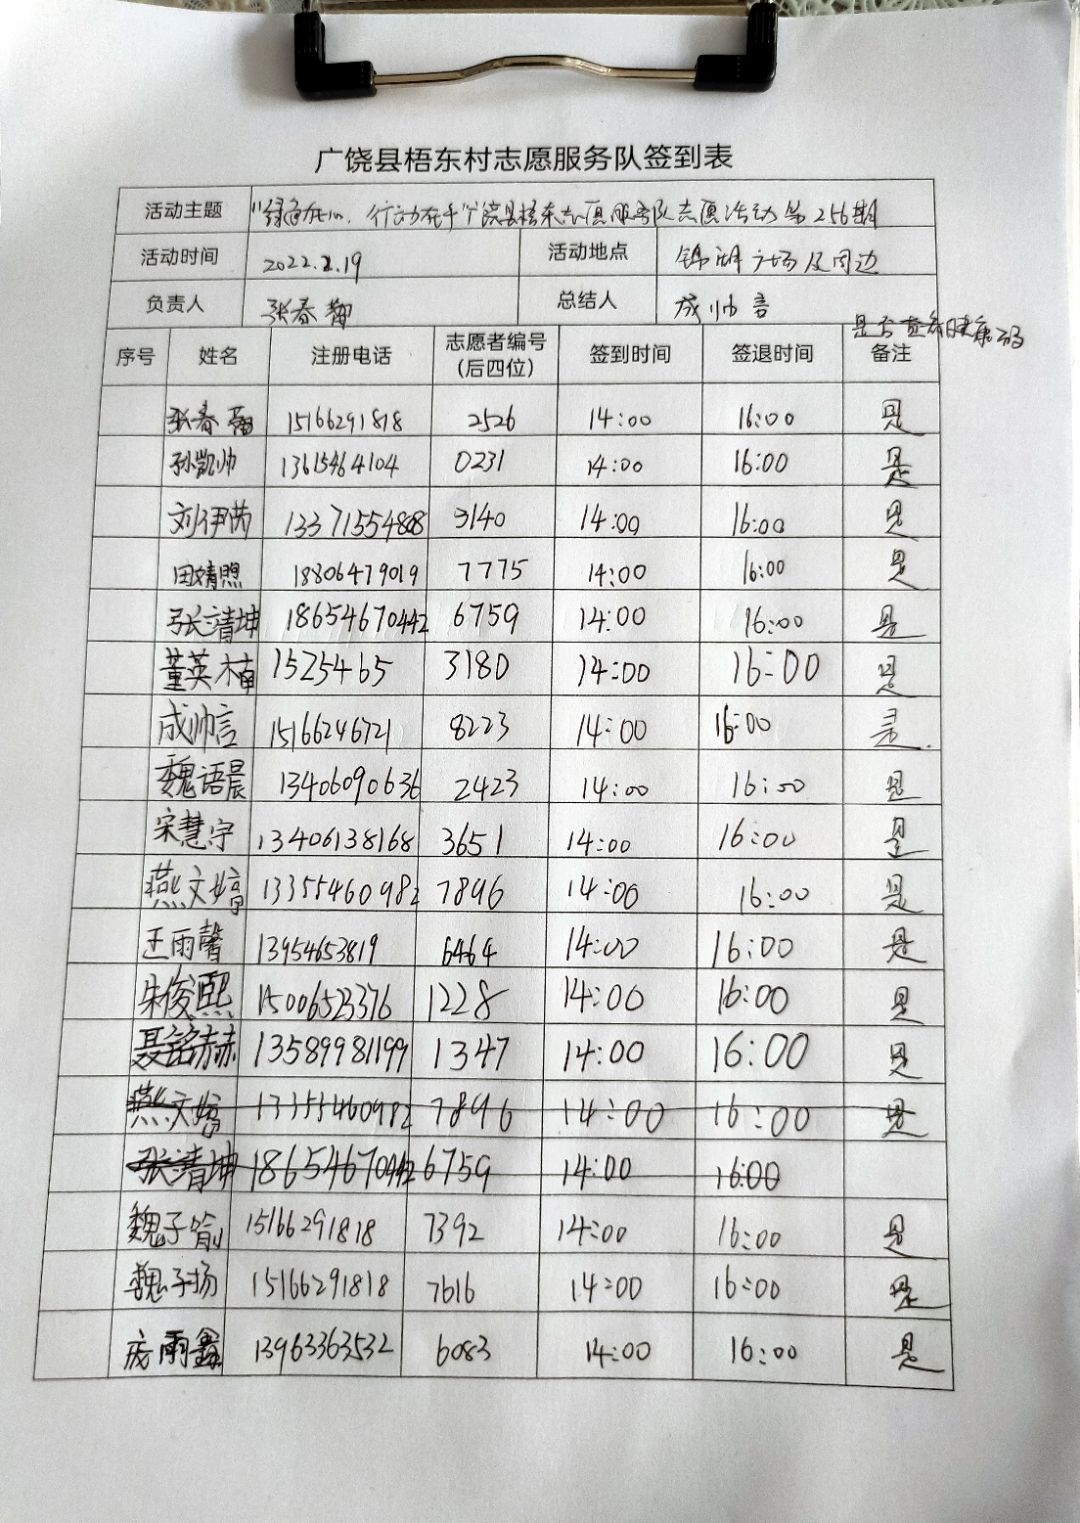 广饶县梧东村志愿服务队签到表
活动主题 "绿色在心、行动在手"广饶县梧东志愿服务队志愿活动第256期
活动时间 2022.2.19 活动地点 锦湖广场及周边
负责人 张春 总结人 成帅言
是否查看健康码
序号 姓名 注册电话 志愿者编号(后四位) 签到时间 签退时间 备注
张春 15166291818 2526 14:00 16:00 是
孙凯帅 13615464104 0231 14:00 16:00 是
刘伊芮 3140 14:00 16:00 是
田婧煦 18806479019 7775 14:00 16:00 是
张靖坤 18654670442 6759 14:00 16:00 是
董英楠 1525465 3180 14:00 16:00 是
成帅言 15166246721 8223 14:00 16:00 是
魏语晨 13406090636 2423 14:00 16:00 是
宋慧宇 13406138168 3651 14:00 16:00 是
燕文婷 13355460982 7896 14:00 16:00 是
王雨馨 13954653819 6464 14:00 16:00 是
朱俊熙 15006523376 1228 14:00 16:00 是
聂铭赫 13589981199 1347 14:00 16:00 是
燕文婷 13355460982 7896 14:00 16:00 是
张靖坤 18654670442 6759 14:00 16:00
魏子喻 15166291818 7392 14:00 16:00 是
魏子扬 15166291818 7616 14:00 16:00 是
雨鑫 13963363532 6083 14:00 16:00 是